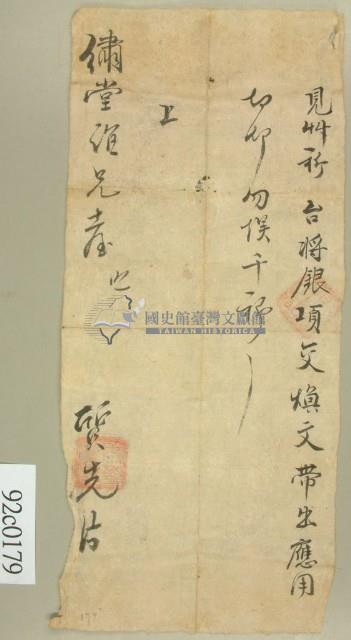 見艸祈 台將銀項交煥文帶出應用
切切勿悞千祈
上
繡堂 兄臺
賢先
國史館臺灣文獻館
TAIWAN HISTORICA
92c0179
179